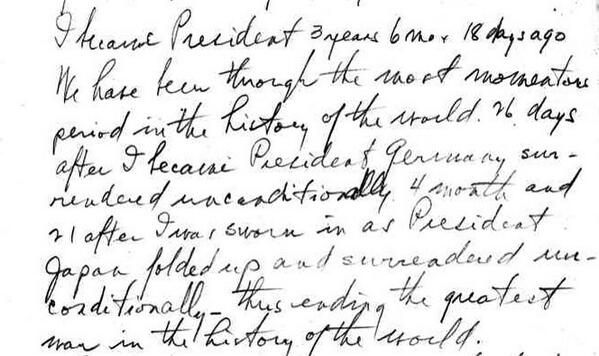 I became President 3 years 6 mo & 18 days ago
We have been through the most momentous
period in the history of the world. 26 days
after I became President Germany sur-
rendered unconditionally 4 month and
21 after I was sworn in as President
Japan folded up and surrendered un-
conditionally - thus ending the greatest
war in the history of the world.